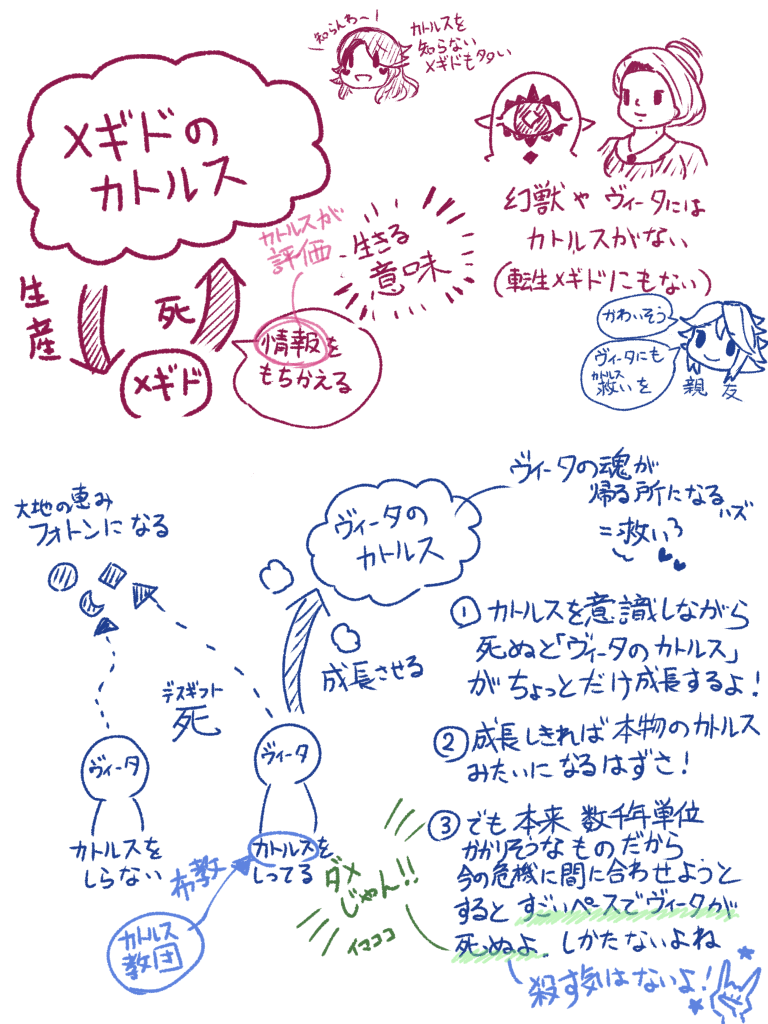 知らんわ〜!
カトルスを
知らない
メギドも多い
メギドの
カトルス
生産
死
メギド
カトルスが
評価
生きる
意味
情報を
もちかえる
幻獣やヴィータには
カトルスがない
(転生メギドにもない)
かわいそう
ヴィータにも
カトルス
救いを
親友
大地の恵み
フォトンになる
デスギフト
死
ヴィータ
カトルスを
しらない
ヴィータの
カトルス
成長させる
ヴィータ
カトルスを
しってる
布教
カトルス
教団
ヴィータの魂が
帰る所になる
ハズ
=救い
①カトルスを意識しながら
死ぬと「ヴィータのカトルス」
がちょっとだけ成長するよ!
②成長しきれば本物のカトルス
みたいになるはずさ!
③でも本来数千年単位
かかりそうなものだから
今の危機に間に合わせようと
するとすごいペースでヴィータが
死ぬよ。しかたないよね
ダメ
じゃん!!
イマココ
殺す気はないよ!